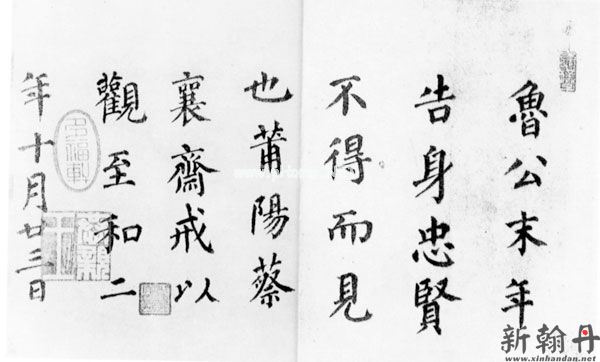 魯公末年
告身忠賢
不得而見
也莆陽蔡
襄齋戒以
觀至和二
年十月廿三日
新翰丹
www.xinhandan.net